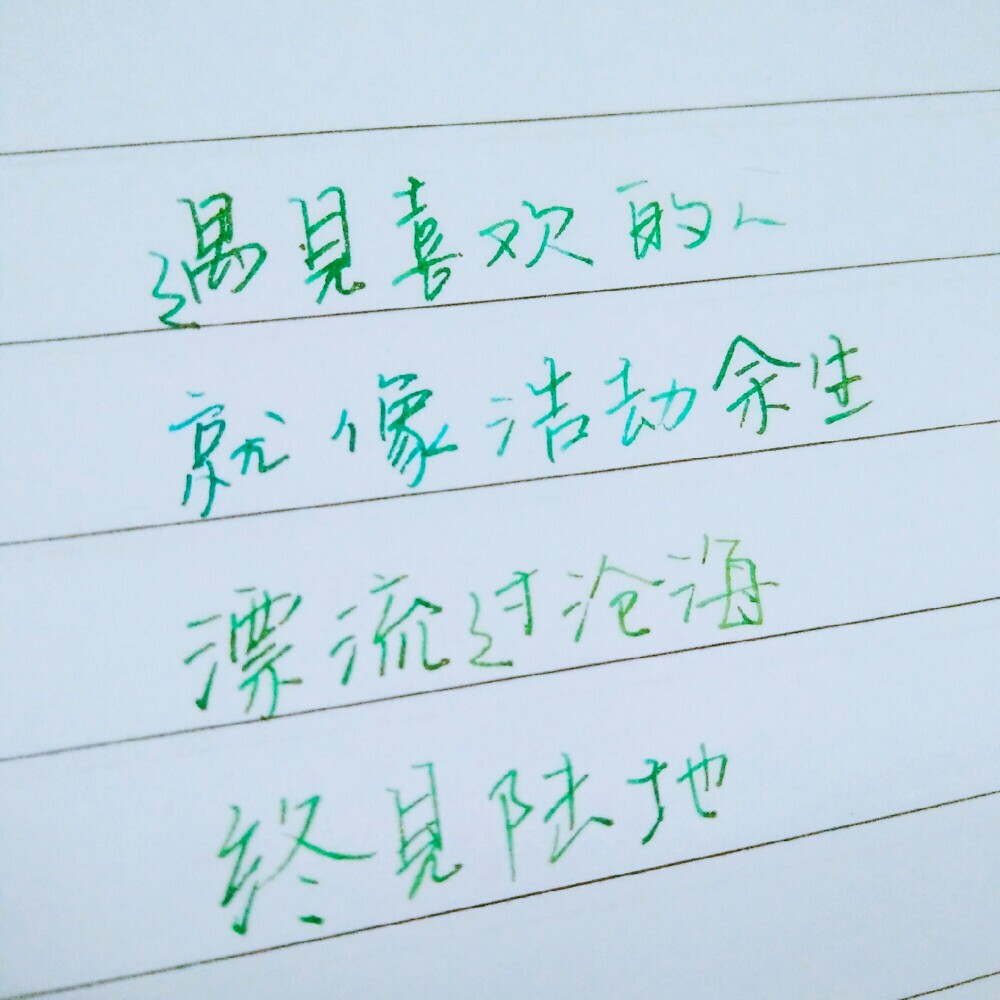 遇見喜欢的人
就像浩劫余生
漂流过沧海
終見陆地